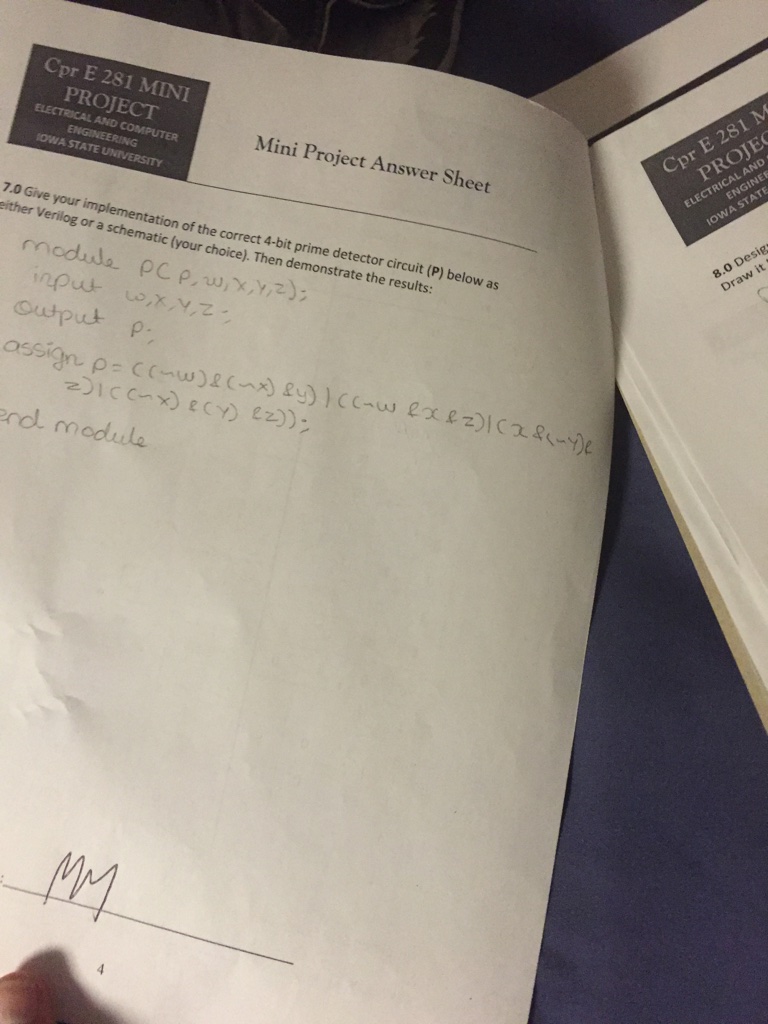 Cpr E 281 MINI
PROJECT
ELECTRICAL AND COMPUTER
ENGINEERING
IOWA STATE UNIVERSITY
Mini Project Answer Sheet
7.0 Give your implementation of the correct 4-bit prime detector circuit (P) below as
either Verilog or a schematic (your choice). Then demonstrate the results:
module P(P,w,x,y,z);
input w,x,y,z;
output p;
assign p= ((~w)&(~x)&y)|((~w &x&z)|(x&(~y)&
z)|((~x)&(y)&z));
end module
MM
4
Cpr E 281 M
PROJEC
ELECTRICAL AND
ENGINEE
IOWA STATE
8.0 Desig
Draw it